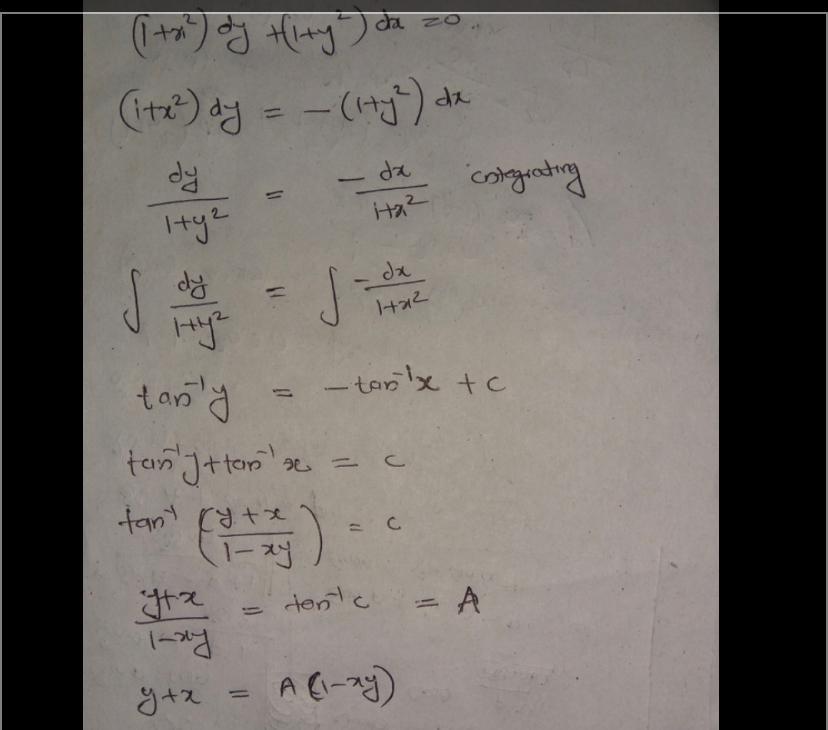 (1+x²) dy + (1+y²) dx = 0.
(1+x²) dy = -(1+y²) dx
dy/1+y² = -dx/1+x² integrating
∫ dy/1+y² = ∫ -dx/1+x²
tan⁻¹y = -tan⁻¹x + c
tan⁻¹y + tan⁻¹x = c
tan⁻¹ (y+x/1-xy) = c
y+x/1-xy = tan⁻¹ c = A
y+x = A (1-xy)